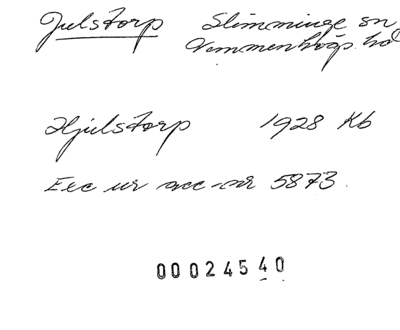 Julstorp Slimminge sn
Vemmenhögs hd
Hjulstorp 1928 Kb
Exc ur acc-nr 5873.
00024540